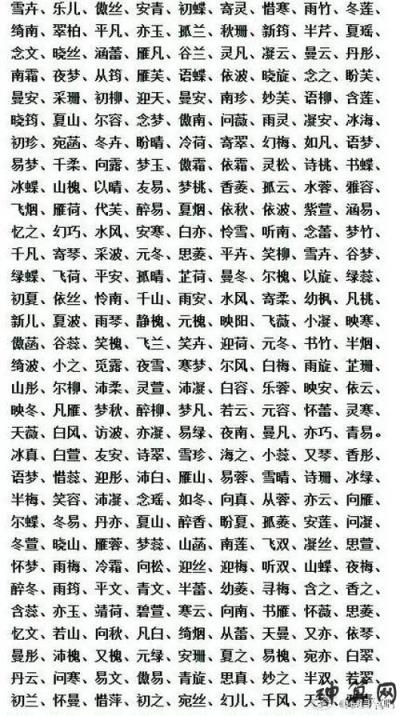 雪卉、乐儿、傲丝、安青、初蝶、寄灵、惜寒、雨竹、冬莲、
绮南、翠柏、平凡、亦玉、孤兰、秋珊、新筠、半芹、夏瑶、
念文、晓丝、涵蕾、雁凡、谷兰、灵凡、凝云、曼云、丹彤、
南霜、夜梦、从筠、雁芙、语蝶、依波、晓旋、念之、盼芙、
曼安、采珊、初柳、迎天、曼安、南珍、妙芙、语柳、含莲、
晓筠、夏山、尔容、念梦、傲南、问薇、雨灵、凝安、冰海、
初珍、宛菡、冬卉、盼晴、冷荷、寄翠、幻梅、如凡、语梦、
易梦、千柔、向露、梦玉、傲霜、依霜、灵松、诗桃、书蝶、
冰蝶、山槐、以晴、友易、梦桃、香菱、孤云、水蓉、雅容、
飞烟、雁荷、代芙、醉易、夏烟、依秋、依波、紫萱、涵易、
忆之、幻巧、水风、安寒、白亦、怜雪、听南、念蕾、梦竹、
千凡、寄琴、采波、元冬、思菱、平卉、笑柳、雪卉、谷梦、
绿蝶、飞荷、平安、孤晴、芷荷、曼冬、尔槐、以旋、绿蕊、
初夏、依丝、怜南、千山、雨安、水风、寄柔、幼枫、凡桃、
新儿、夏波、雨琴、静槐、元槐、映阳、飞薇、小凝、映寒、
傲菡、谷蕊、笑槐、飞兰、笑卉、迎荷、元冬、书竹、半烟、
绮波、小之、觅露、夜雪、寒梦、尔风、白梅、雨旋、芷珊、
山彤、尔柳、沛柔、灵萱、沛凝、白容、乐蓉、映安、依云、
映冬、凡雁、梦秋、醉柳、梦凡、若云、元容、怀蕾、灵寒、
天薇、白风、访波、亦凝、易绿、夜南、曼凡、亦巧、青易。
冰真、白萱、友安、诗翠、雪珍、海之、小蕊、又琴、香彤、
语梦、惜蕊、迎彤、沛白、雁山、易蓉、雪晴、诗珊、冰绿、
半梅、笑容、沛凝、念瑶、如冬、向真、从蓉、亦云、向雁、
尔蝶、冬易、丹亦、夏山、醉香、盼夏、孤菱、安莲、问凝、
冬萱、晓山、雁蓉、梦蕊、山菡、南莲、飞双、凝丝、思萱、
怀梦、雨梅、冷霜、向松、迎丝、迎梅、听双、山蝶、夜梅、
醉冬、雨筠、平文、青文、半蕾、幼菱、寻梅、含之、香之、
含蕊、亦玉、靖荷、碧萱、寒云、向南、书雁、怀薇、思菱、
忆文、若山、向秋、凡白、绮烟、从蕾、天曼、又亦、依琴、
曼彤、沛槐、又槐、元绿、安珊、夏之、易槐、宛亦、白翠、
丹云、问寒、易文、傲易、青旋、思真、妙之、半双、若翠、
初兰、怀曼、惜萍、初之、宛丝、幻儿、千风、天